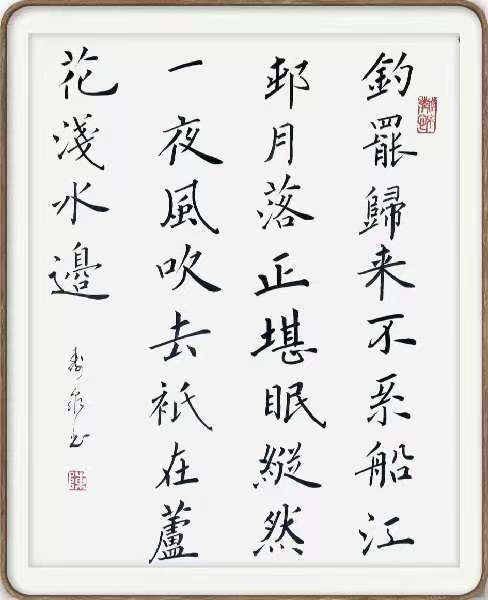 釣罷歸来不系船江
邨月落正堪眠縱然
一夜風吹去衹在蘆
花淺水邊